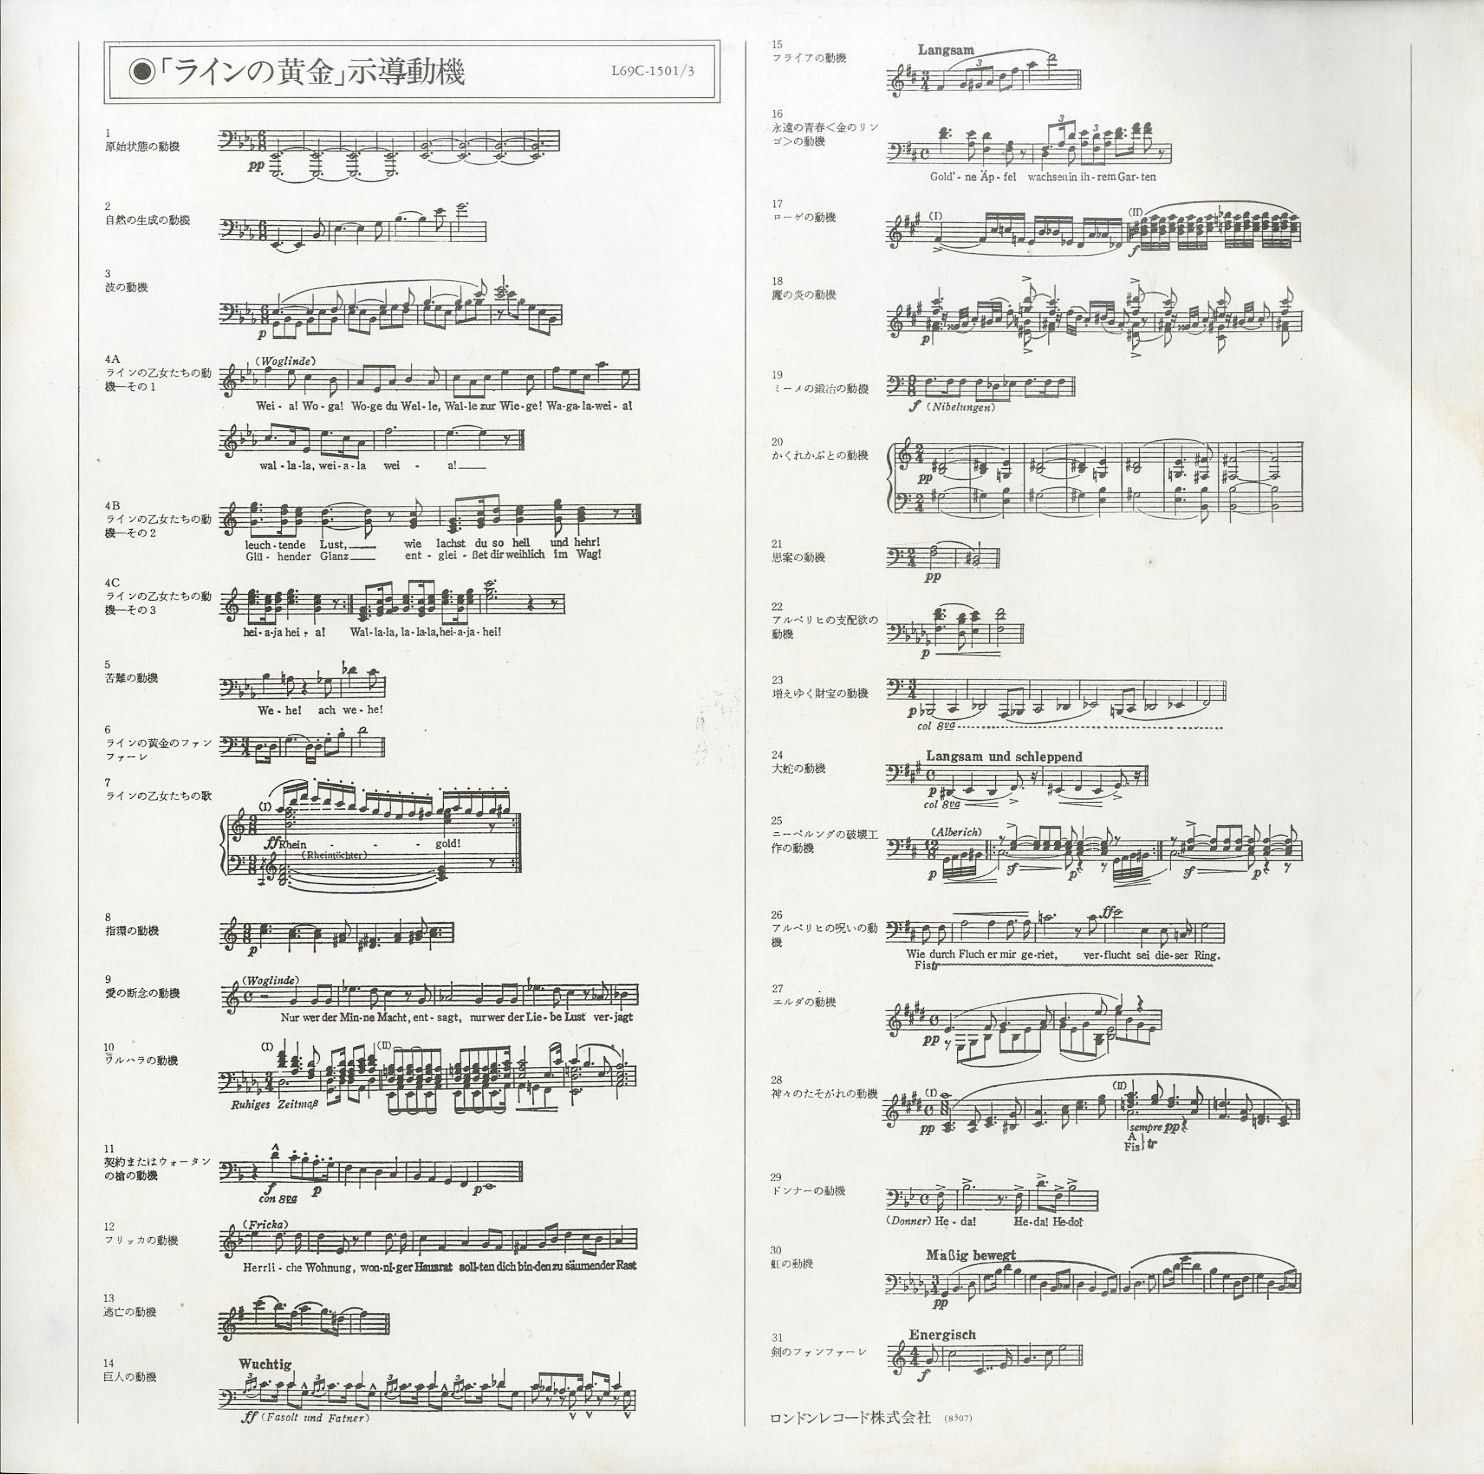 ●「ラインの黄金」示導動機
L69C-1501/3
1
原始状態の動機
pp
2
自然の生成の動機
3
波の動機
p
4A
ラインの乙女たちの動
機―その1
(Woglinde)
Wei - a! Wo - ga! Wo-ge du Wel - le, Wal-le zur Wie-ge! Wa-ga-la-wei - a!
wal - la-la, wei-a-la wei - a!
4B
ラインの乙女たちの動
機―その2
leuch-tende Lust, wie lachst du so hell und hehr!
Glü - hender Glanz ent - glei - ßet dir weihlich im Wag!
4C
ラインの乙女たちの動
機―その3
hei-a-ja hei - a! Wal-la-la, la-la-la, hei-a-ja-hei!
5
苦難の動機
We-he! ach we-he!
6
ラインの黄金のファン
ファーレ
7
ラインの乙女たちの歌
(I)
ff Rhein - - - gold!
(Rheintöchter)
8
指環の動機
p
9
愛の断念の動機
(Woglinde)
Nur wer der Min-ne Macht, ent-sagt, nur wer der Lie-be Lust ver-jagt
10
ワルハラの動機
(I) (II)
Ruhiges Zeitmaß
11
契約またはウォータン
の槍の動機
f p p
con 8va
12
フリッカの動機
(Fricka)
Herrli - che Wohnung, won-ni-ger Hausrat soll-ten dich bin-den zu säumender Rast
13
逃亡の動機
14
巨人の動機
Wuchtig
3 3 3 3
ff (Fasolt und Fafner)
15
フライアの動機
Langsam
3
16
永遠の青春<金のリン
ゴ>の動機
3 3
Gold'-ne Äp-fel wachsen in ih-rem Gar-ten
17
ローゲの動機
(I) (II)
f
18
魔の炎の動機
p
19
ミーメの鍛冶の動機
f (Nibelungen)
20
かくれかぶとの動機
pp
21
思案の動機
pp
22
アルベリヒの支配欲の
動機
p
23
増えゆく財宝の動機
p
col 8va
24
大蛇の動機
Langsam und schleppend
p
col 8va
25
ニーベルングの破壊工
作の動機
(Alberich)
p sf p sf p
26
アルベリヒの呪いの動
機
ff
Wie durch Fluch er mir ge-riet, ver-flucht sei die-ser Ring.
Fis tr
27
エルダの動機
pp
28
神々のたそがれの動機
(I) (II)
pp sempre pp
A
Fis tr
29
ドンナーの動機
(Donner) He - da! He-da! He-do!
30
虹の動機
Mäßig bewegt
pp
31
剣のファンファーレ
Energisch
f
ロンドンレコード株式会社 (8307)